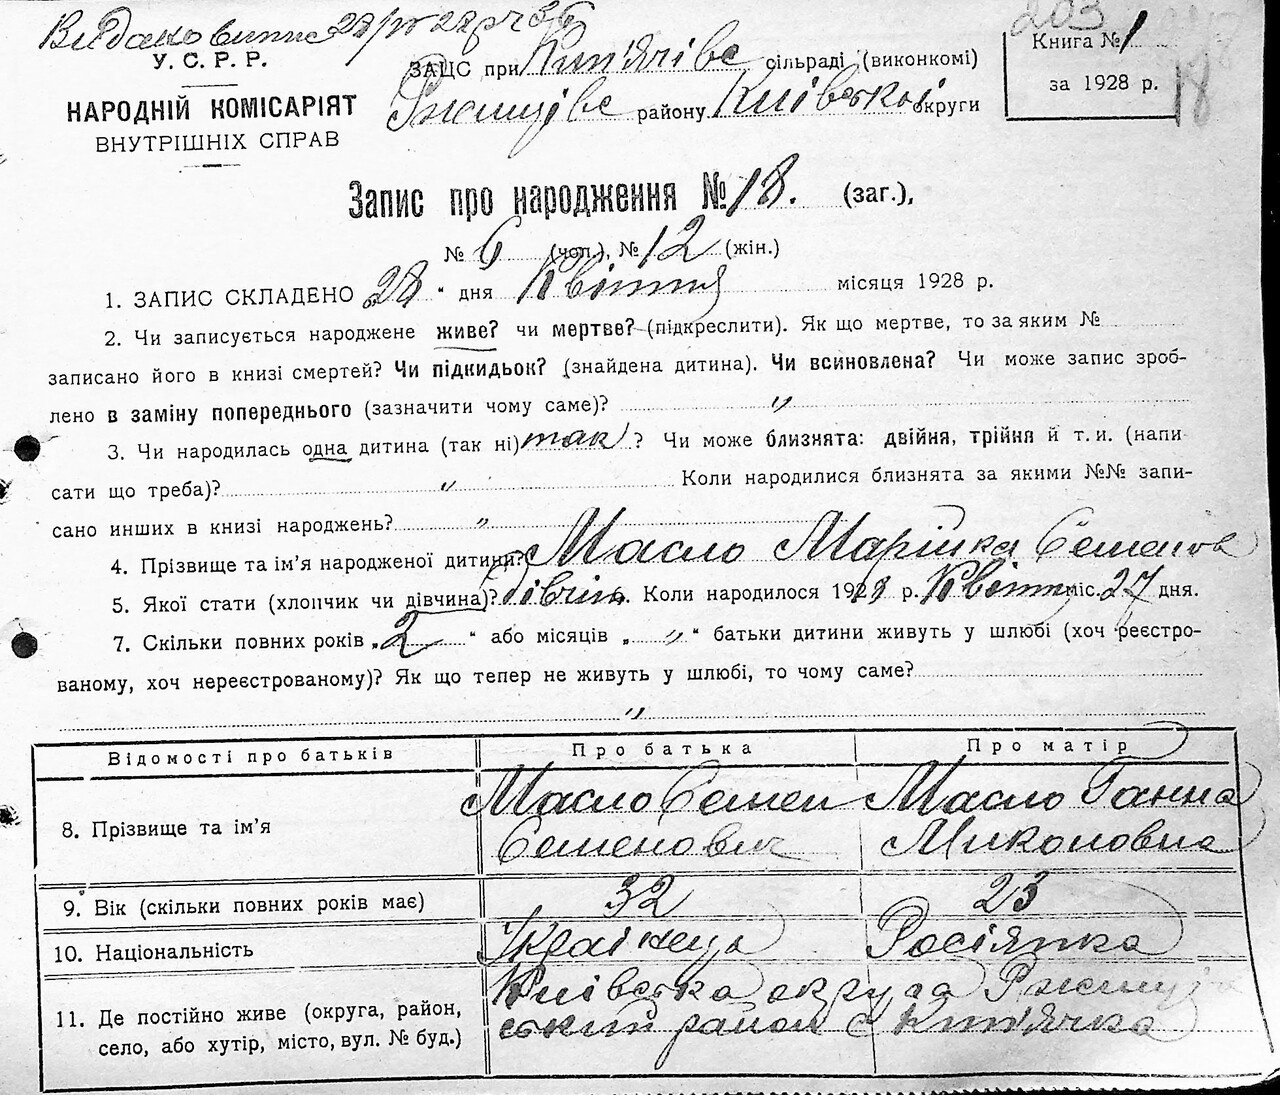 Видано виписе 22/IV 22 р ч 36
203
У. С. Р. Р.
НАРОДНІЙ КОМІСАРІЯТ
ВНУТРІШНІХ СПРАВ
ЗАЦС при Кип'ячівс сільраді (виконкомі)
Ржищівс району Київської округи
Книга № 1
за 1928 р.
18
Запис про народження № 18. (заг.),
№ 6 (чол.), № 12 (жін.)
1. ЗАПИС СКЛАДЕНО 28 " дня Квітня місяця 1928 р.
2. Чи записується народжене живе? чи мертве? (підкреслити). Як що мертве, то за яким №
записано його в книзі смертей? Чи підкидьок? (знайдена дитина). Чи всиновлена? Чи може запис зроб-
лено в заміну попереднього (зазначити чому саме)? "
3. Чи народилась одна дитина (так ні) так ? Чи може близнята: двійня, трійня й т. и. (напи-
сати що треба)? " Коли народилися близнята за якими №№ запи-
сано инших в книзі народжень? "
4. Прізвище та ім'я народженої дитини? Масло Марійка Семенов
5. Якої стати (хлопчик чи дівчина)? Дівчин. Коли народилося 1928 р. Квітня міс. 27 дня.
7. Скільки повних років „ 2 " або місяців „ " " батьки дитини живуть у шлюбі (хоч реєстро-
ваному, хоч нереєстрованому)? Як що тепер не живуть у шлюбі, то чому саме?
"
Відомості про батьків Про батька Про матір
8. Прізвище та ім'я Масло Семен Семенович Масло Ганна Миколовна
9. Вік (скільки повних років має) 32 23
10. Національність Українець Росіянка
11. Де постійно живе (округа, район,
село, або хутір, місто, вул. № буд.)
Київська округа Ржищів
ський район с Кип'ячка